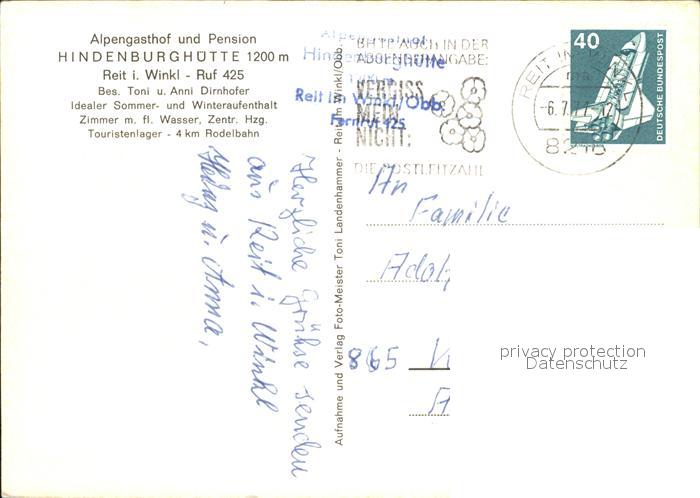 Alpengasthof und Pension
HINDENBURGHÜTTE 1200 m
Reit i. Winkl - Ruf 425
Bes. Toni u. Anni Dirnhofer
Idealer Sommer- und Winteraufenthalt
Zimmer m. fl. Wasser, Zentr. Hzg.
Touristenlager - 4 km Rodelbahn
Herzliche Grüße senden
aus Reit i. Winkl
Aufnahme und Verlag Foto-Meister Toni Landenhammer - Reit im Winkl/Obb.
Hindenburghütte
Reit im Winkl/Obb.
Fernruf 425
BITTE AUCH IN DER
ABSENDERANGABE:
VERGISS
MEIN
NICHT:
DIE POSTLEITZAHL
REIT IM
8216
40
DEUTSCHE BUNDESPOST
An
Familie
Adol
865
privacy protection
Datenschutz